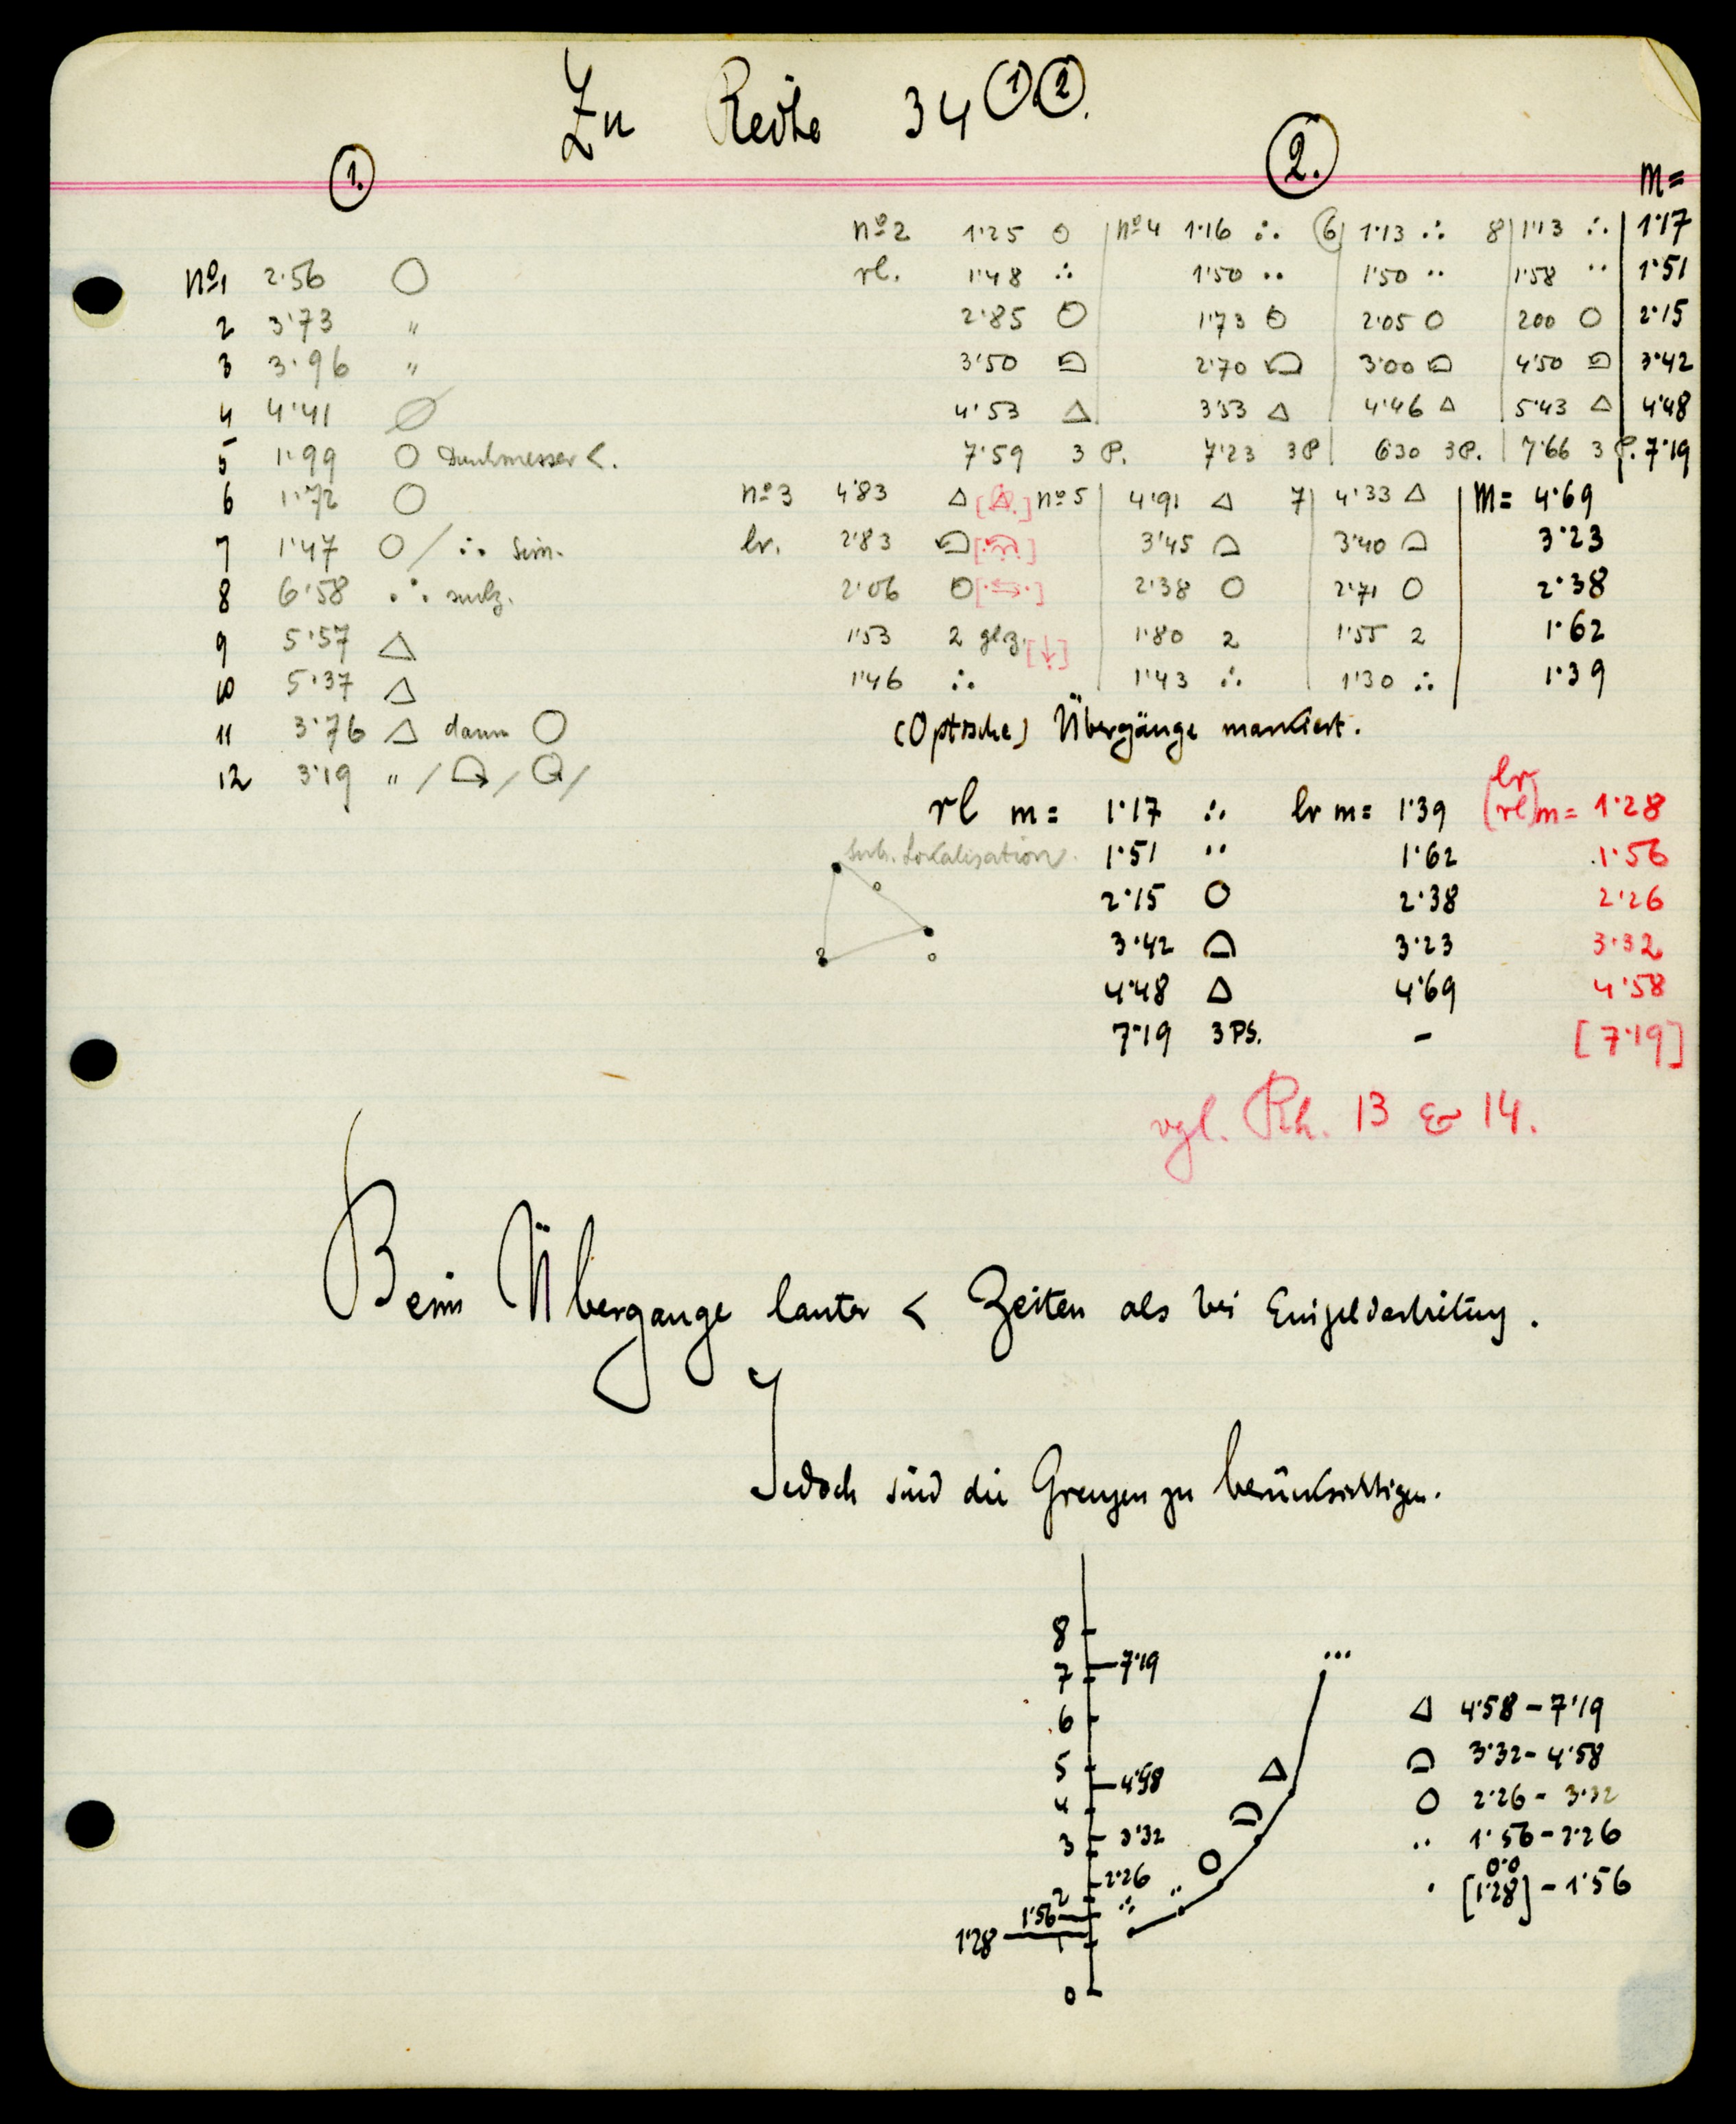 Zu Reihe 34 ① ②.
①.
②.
M=
nº2 1·25 ○ nº4 1·16 ∴ ⑥ 1·13 ∴ 8 1·13 ∴ 1·17
rl. 1·48 ∴ 1·50 ·· 1·50 ·· 1·58 ·· 1·51
2·85 ○ 1·73 ○ 2·05 ○ 200 ○ 2·15
3'50 2·70 3·00 4'50 3·42
4'53 △ 3'53 △ 4·46 △ 5'43 △ 4·48
7'59 3 P. 7'23 3P 630 3P. 7'66 3 P. 7·19
nº1 2·56 ○
2 3'73 "
3 3·96 "
4 4'41 ∅
5 1·99 ○ Durchmesser <.
6 1'72 ○
7 1'47 ○ / ∴ sim.
8 6'58 ∴ sukz.
9 5'57 △
10 5'37 △
11 3'76 △ dann ○
12 3'19 " / /
nº3 4'83 △ nº5 4'91 △ 7 4'33 △ M= 4·69
lr. 2'83 3'45 3'40 3·23
2'06 ○ 2'38 ○ 2'71 ○ 2·38
1'53 2 glz. [↓] 1·80 2 1'55 2 1·62
1'46 ∴ 1'43 ∴ 1'30 ∴ 1·39
(Optische) Übergänge markiert.
rl m= 1·17 ∴ lr m= 1·39 lr (rl) m= 1·28
1·51 ·· 1·62 1·56
2·15 ○ 2·38 2·26
3·42 3·23 3·32
4·48 △ 4·69 4·58
7·19 3 PS. – [7·19]
sub. Lokalisation.
vgl. Rh. 13 & 14.
Beim Übergange lauter < Zeiten als bei Einzeldarbietung.
Jedoch sind die Grenzen zu berücksichtigen.
8
7 7·19
6
5
4·58
4
3 3'32
2·26
2
1·56
1·28
1
0
∴ ·· ○ △ ...
△ 4·58 – 7·19
3·32 – 4·58
○ 2·26 – 3·32
·· 1·56 – 2·26
0·0
· [1·28] – 1·56